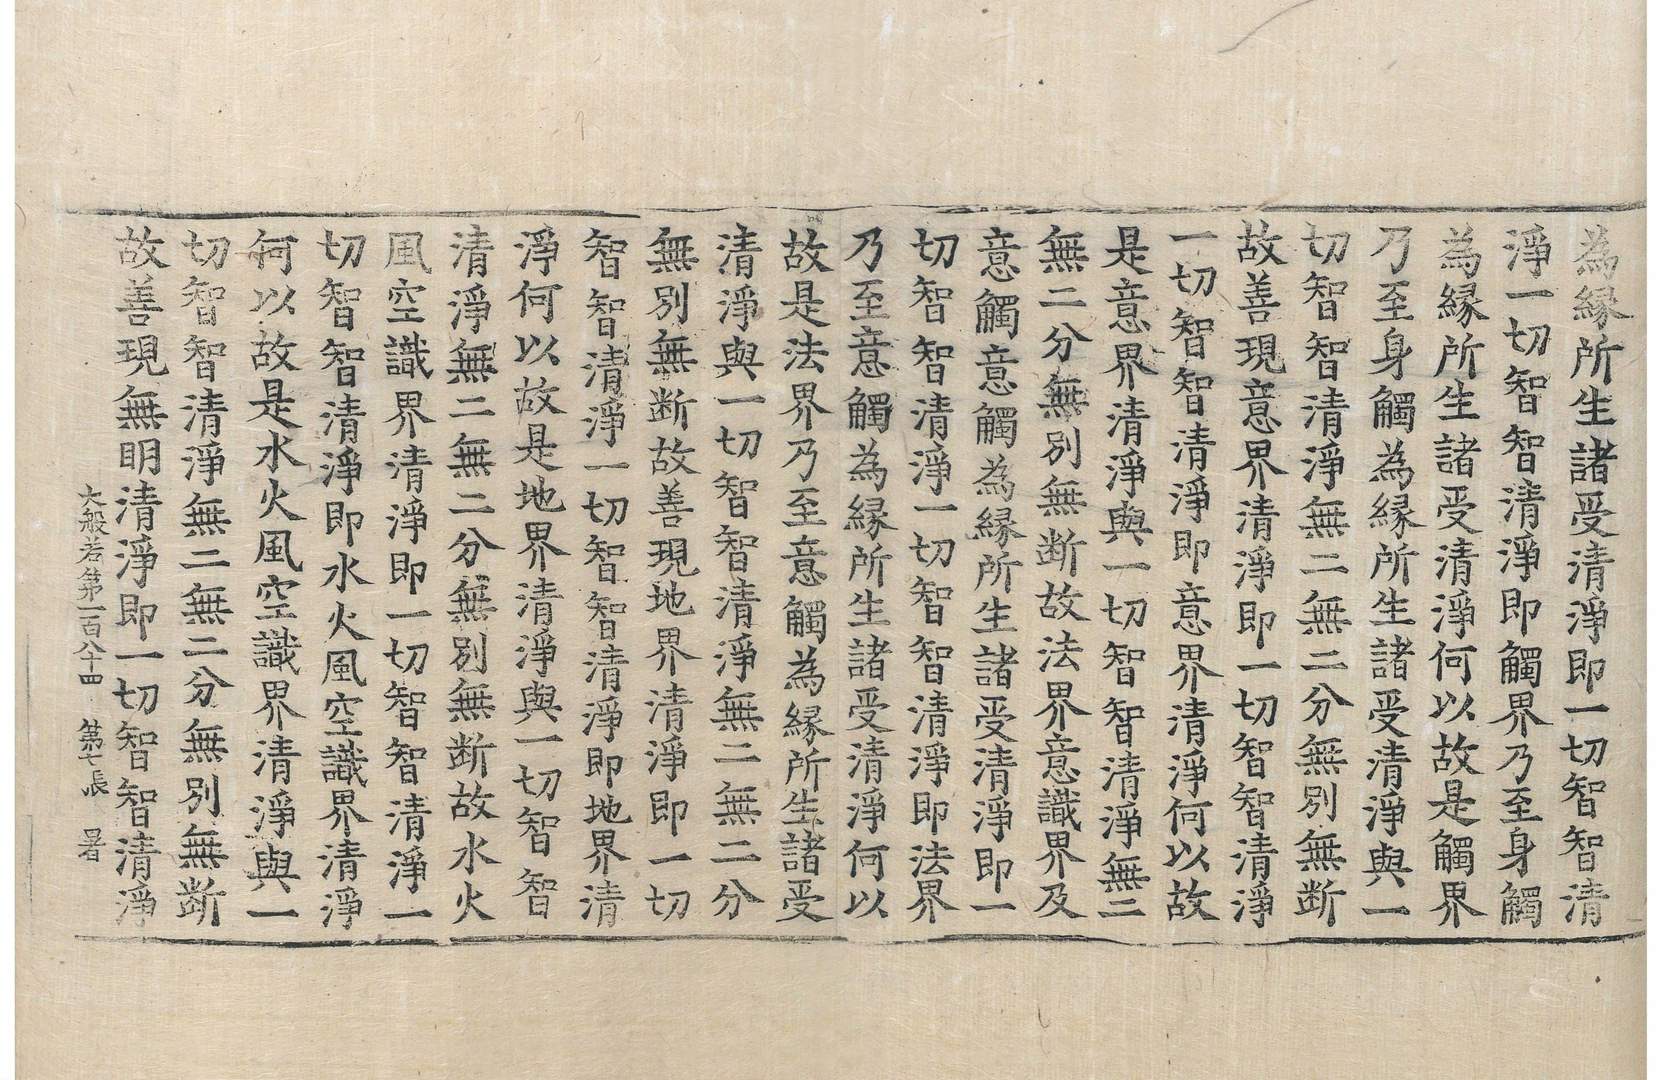 為縁所生諸受清淨即一切智智清
淨一切智智清淨即觸界乃至身觸
為縁所生諸受清淨何以故是觸界
乃至身觸為縁所生諸受清淨與一
切智智清淨無二無二分無別無断
故善現意界清淨即一切智智清淨
一切智智清淨即意界清淨何以故
是意界清淨與一切智智清淨無二
無二分無別無断故法界意識界及
意觸意觸為縁所生諸受清淨即一
切智智清淨一切智智清淨即法界
乃至意觸為縁所生諸受清淨何以
故是法界乃至意觸為縁所生諸受
清淨與一切智智清淨無二無二分
無別無断故善現地界清淨即一切
智智清淨一切智智清淨即地界清
淨何以故是地界清淨與一切智智
清淨無二無二分無別無断故水火
風空識界清淨即一切智智清淨一
切智智清淨即水火風空識界清淨
何以故是水火風空識界清淨與一
切智智清淨無二無二分無別無断
故善現無明清淨即一切智智清淨
大般若第一百八十四 第七張 署